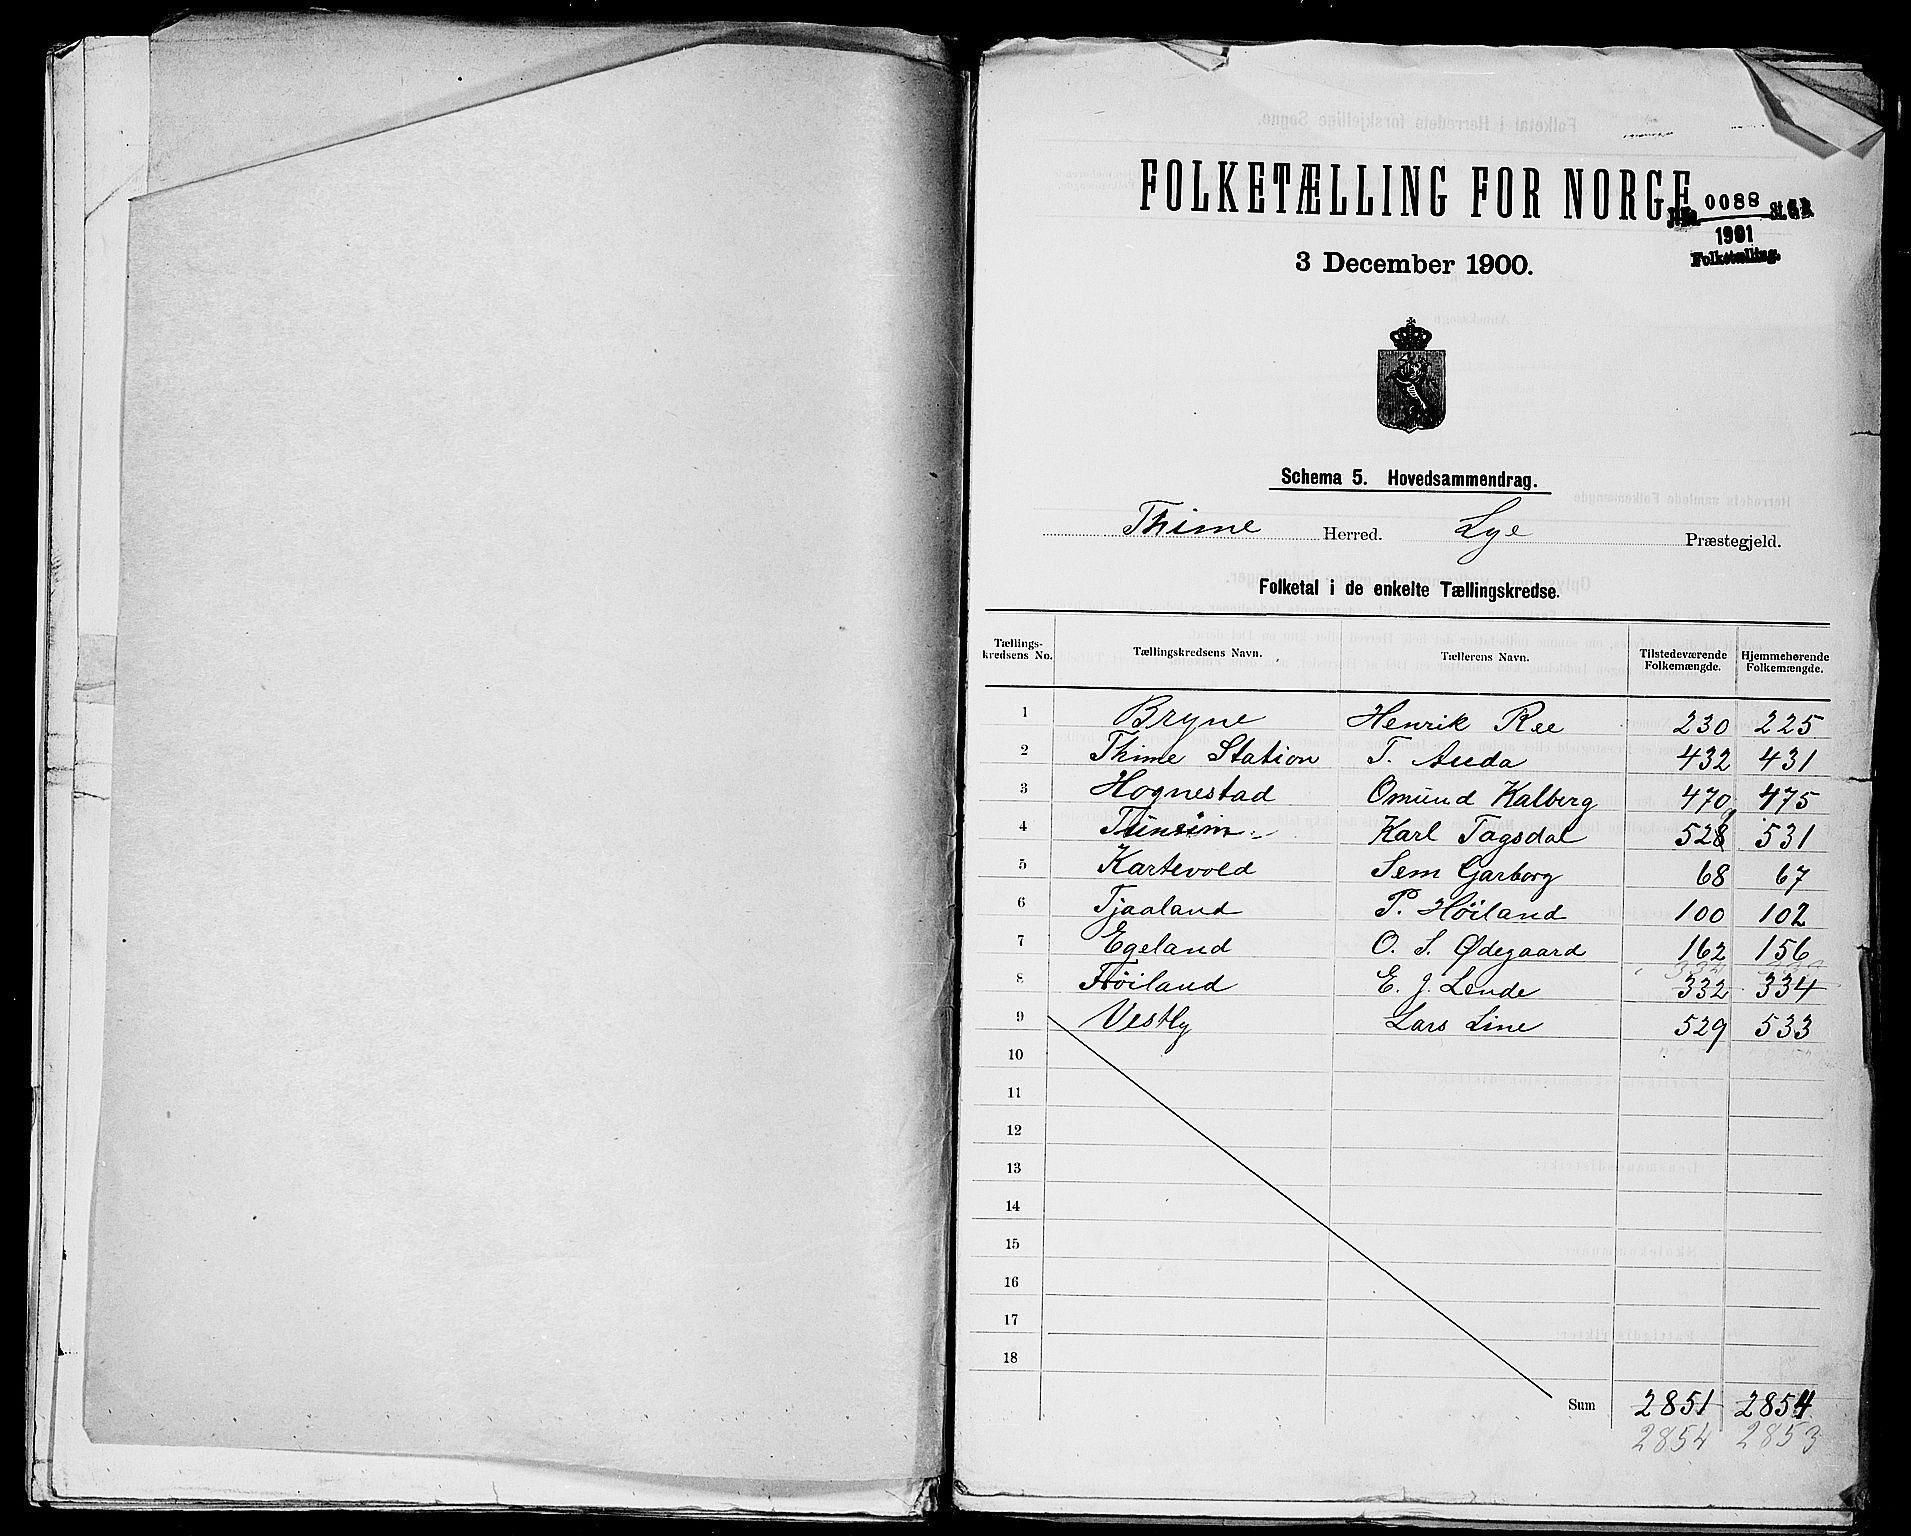 FOLKETÆLLING FOR NORGE
J.No. 0088 St.C.B.
1901
Folketælling.
3 December 1900.
Schema 5. Hovedsammendrag.
Thime Herred. Lye Præstegjeld.
Folketal i de enkelte Tællingskredse.
Tællings-kredsens No. Tællingskredsens Navn. Tællerens Navn. Tilstedeværende Folkemængde. Hjemmehørende Folkemængde.
1 Bryne Henrik Ree 230 225
2 Thime Station T. Auda 432 431
3 Hognestad Omund Kalberg 470 475
4 Karl Tagsdal 528 531
5 Kartevold Sem Garborg 68 67
6 Tjaaland P. Höiland 100 102
7 Egeland O. S. Ødegaard 162 156
334
8 Fröiland E. J. Lende 332 334
9 Vestly Lars Line 529 533
10
11
12
13
14
15
16
17
18
Sum 2851 2854
2854 2853